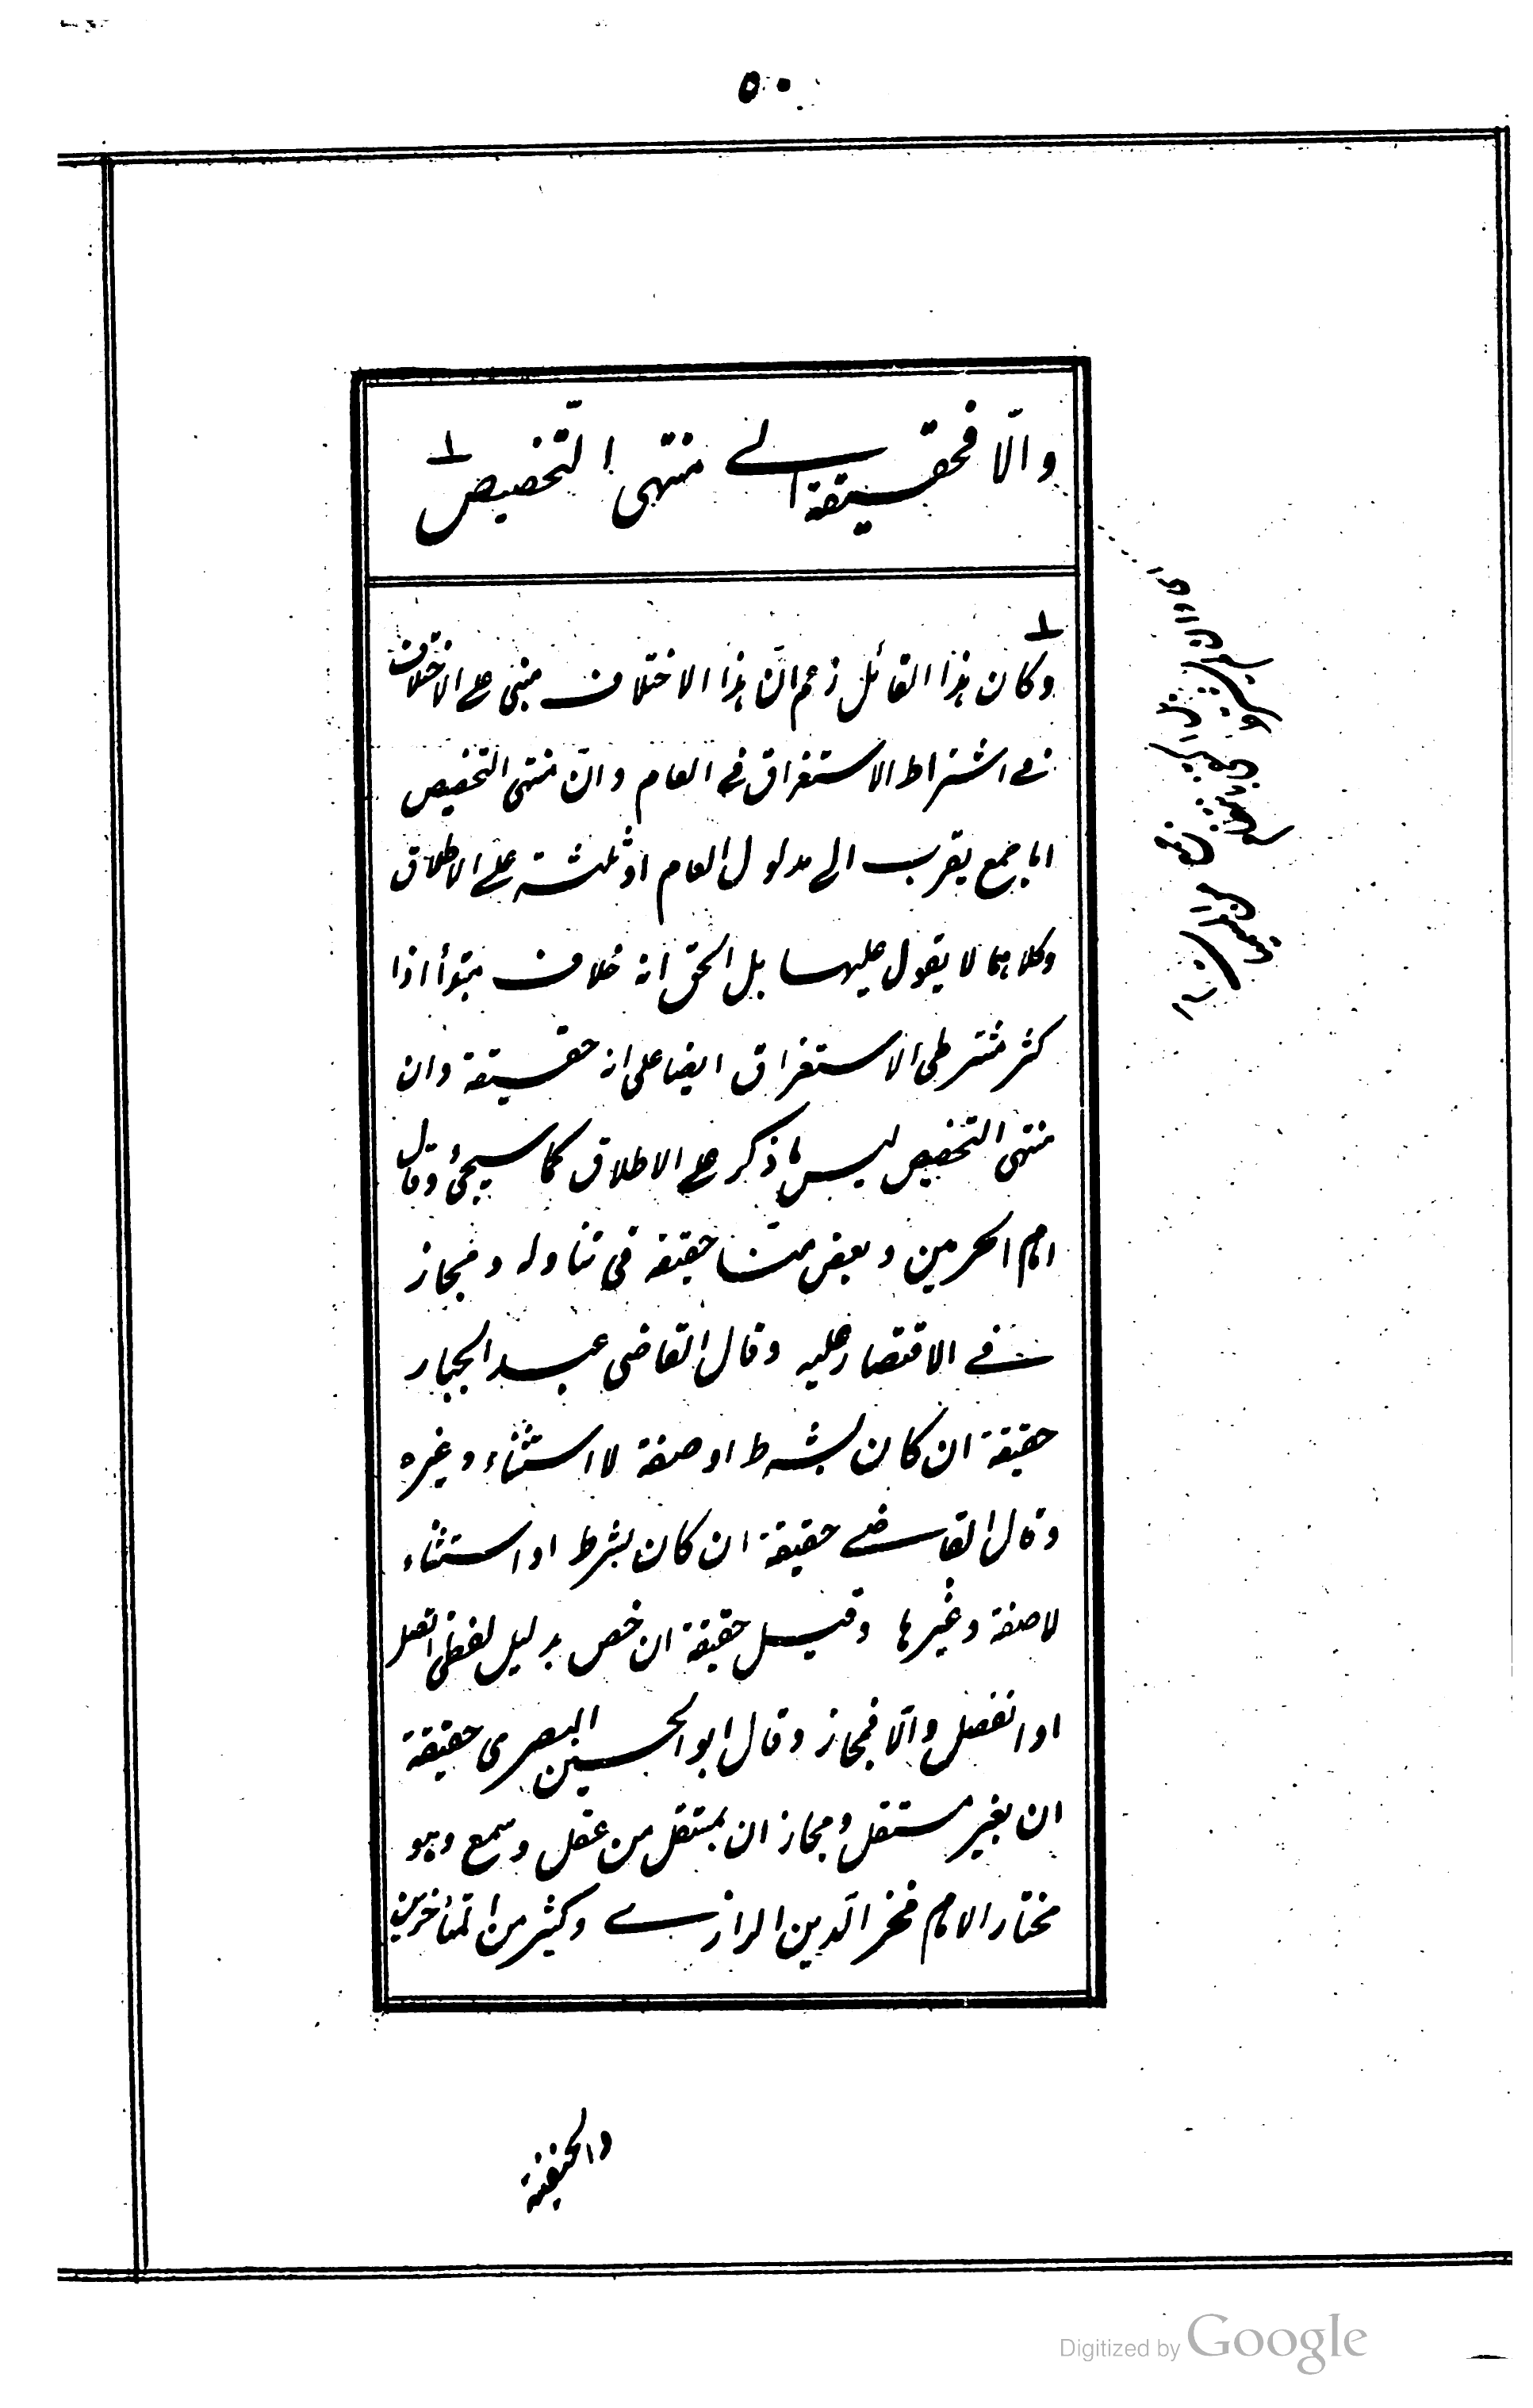 ٥٠
والّا فحقيقة الے منتهى التّخصيص
وكان هذا القائل زعم انّ هذا الاختلاف مبنى علے الاختلاف
فے اشتراط الاستغراق فے العام وانّ منتهى التخصيص
اما جمع يقرب الى مدلول العام او ثلثة علے الاطلاق
وكلاهما لا يقول عليهما بل الحق انه خلاف مبتدأ اذا
كثر مشترطى الاستغراق ايضا على انه حقيقة وان
منتهى التخصيص ليس ما ذكر علے الاطلاق كما سيجئ وقال
امام الحرمين وبعض منّا حقيقة فى تناوله ومجاز
فے الاقتصار عليه وقال القاضى عبد الجبار
حقيقة ان كان بشرط او صفة لا استثناء وغيره
وقال القاضے حقيقة ان كان بشرط او استثناء
لا صفة وغيرها وقيل حقيقة ان خص بدليل لفظى اتصل
او انفصل والّا فمجاز وقال ابو الحسين البصرى حقيقة
ان بغير مستقل ومجاز ان بمستقل من عقل وسمع وهو
مختار الامام فخر الّدين الرازے وكثير من المتأخرين
والحنفية
Digitized by Google